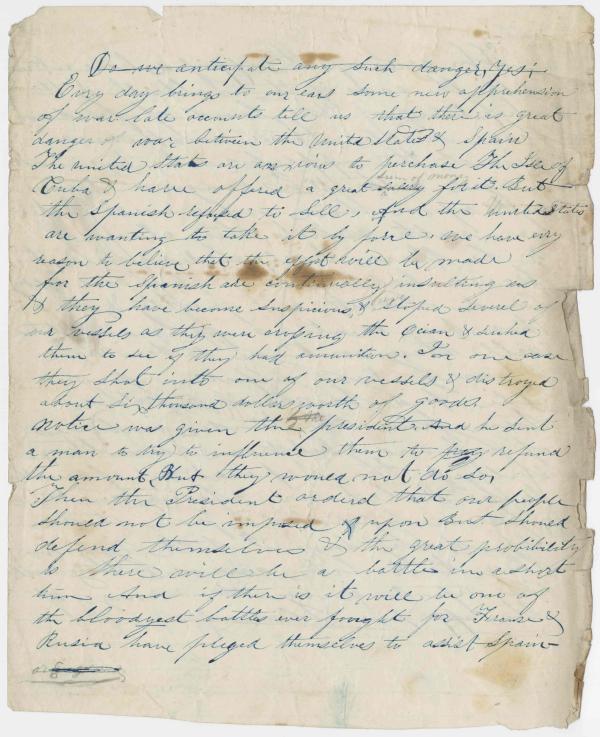 Do we anticipate any such danger, Yes;
Evry day brings to our ears some new apprehension
of war late accounts tell us that there is great
danger of war between the United States & Spain
The united States are anxious to purchase The Isle of
Cuba & have offered a great salery sum of money for it. But
the Spanish refused to Sell, And the United States
are wanting to take it by force, we have evry
reason to believe that the effort will be made
for the Spanish are continually insulting us
& they have become Suspicious, & Stoped Severel of
our vessels as they were crossing the Ocian & serched
them to see if they had amunition. For one case
they Shot into one of our vessels & distroyed
about Six thousand dollars worth of goods
notice was given the president And he sent
a man to try to influence them to pay refund
the amount, But they would not do so,
Then the President orderd that our people
Should not be imposed & upon But Should
defend themselves & the great probibility
is there will be a battle in a short
time And if ther is it will be one of
the bloodyest battles ever fought for Franse &
Rusia have pleged themselves to assist Spain